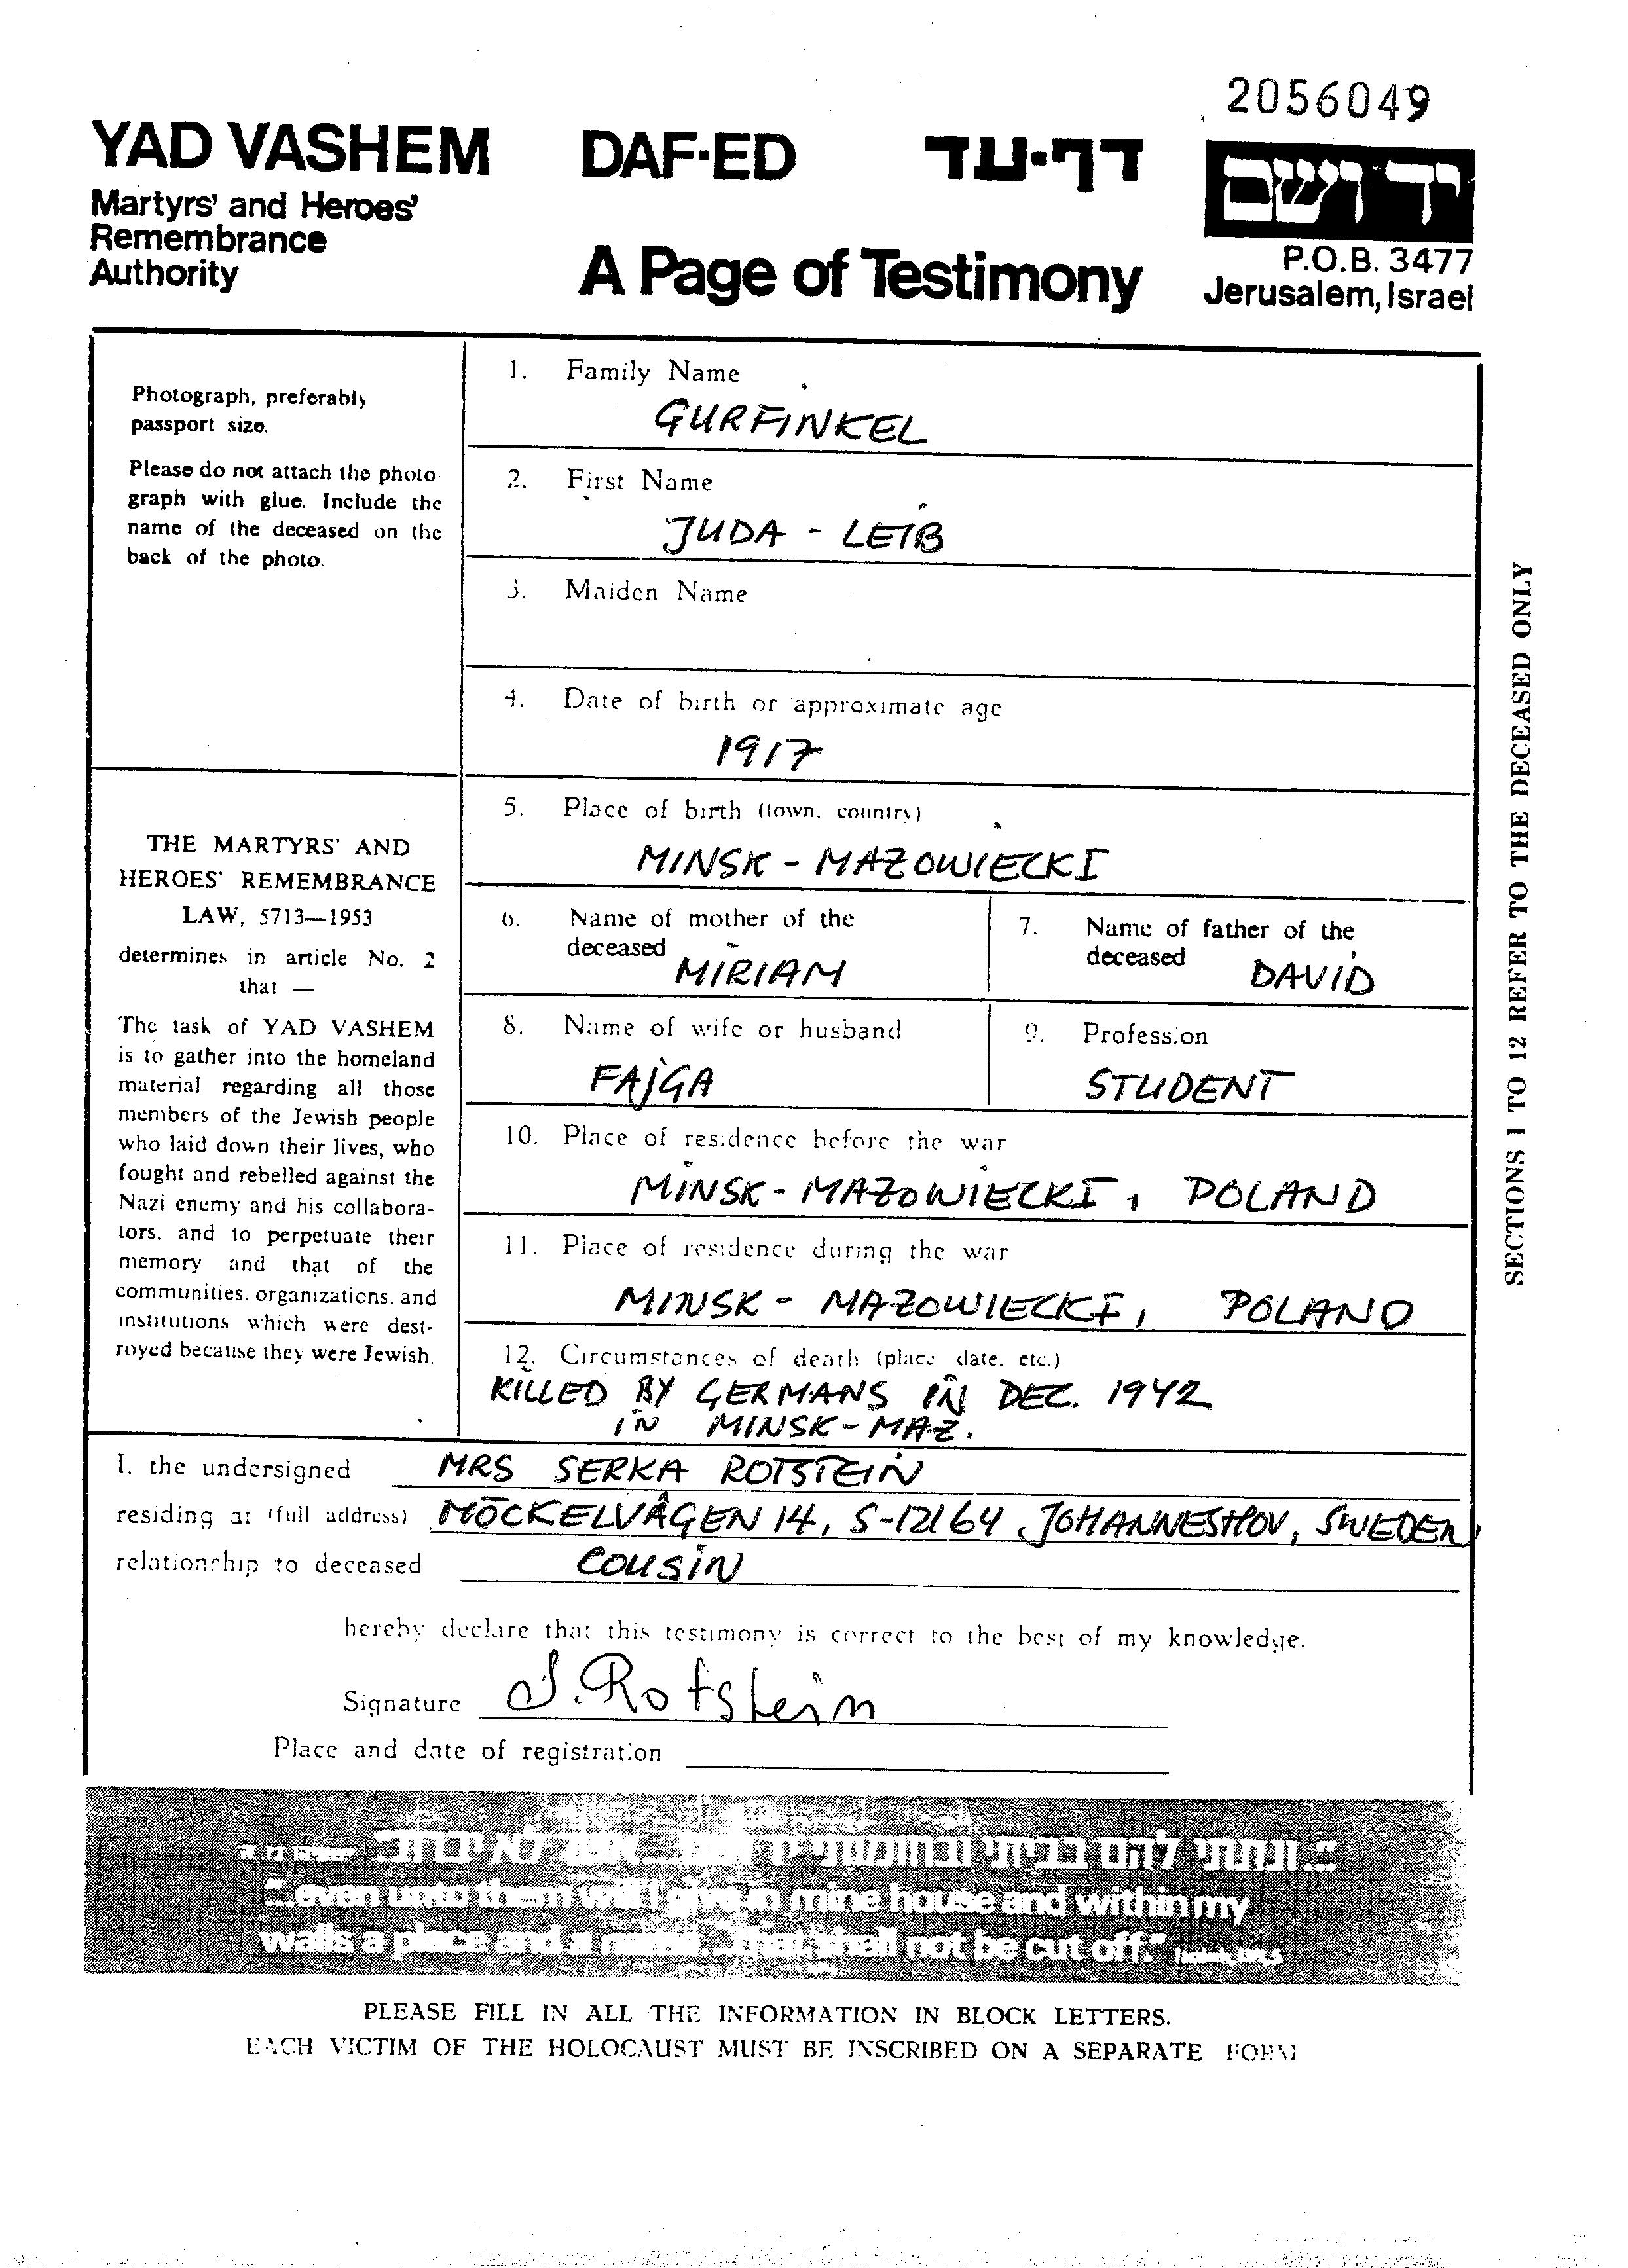 2056049
YAD VASHEM DAF-ED דף-עד ידושם
Martyrs' and Heroes'
Remembrance
Authority
A Page of Testimony
P.O.B. 3477
Jerusalem, Israel
Photograph, preferably
passport size.
Please do not attach the photo
graph with glue. Include the
name of the deceased on the
back of the photo.
THE MARTYRS' AND
HEROES' REMEMBRANCE
LAW, 5713—1953
determines in article No. 2
that —
The task of YAD VASHEM
is to gather into the homeland
material regarding all those
members of the Jewish people
who laid down their lives, who
fought and rebelled against the
Nazi enemy and his collabora-
tors, and to perpetuate their
memory and that of the
communities, organizations, and
institutions which were dest-
royed because they were Jewish.
1. Family Name
GURFINKEL
2. First Name
JUDA - LEIB
3. Maiden Name
4. Date of birth or approximate age
1917
5. Place of birth (town, country)
MINSK - MAZOWIECKI
6. Name of mother of the
deceased
MIRIAM
7. Name of father of the
deceased
DAVID
8. Name of wife or husband
FAJGA
9. Profession
STUDENT
10. Place of residence before the war
MINSK - MAZOWIECKI, POLAND
11. Place of residence during the war
MINSK - MAZOWIECKI, POLAND
12. Circumstances of death (place, date, etc.)
KILLED BY GERMANS IN DEC. 1942
IN MINSK - MAZ.
SECTIONS 1 TO 12 REFER TO THE DECEASED ONLY
I, the undersigned MRS SERKA ROTSTEIN
residing at (full address) MÖCKELVÄGEN 14, S-12164 JOHANNESHOV, SWEDEN
relationship to deceased COUSIN
hereby declare that this testimony is correct to the best of my knowledge.
Signature S. Rotstein
Place and date of registration
"...ונתתי להם בביתי ובחומותי יד ושם... אשר לא יכרת"
"...even unto them will I give in mine house and within my
walls a place and a name... that shall not be cut off."
PLEASE FILL IN ALL THE INFORMATION IN BLOCK LETTERS.
EACH VICTIM OF THE HOLOCAUST MUST BE INSCRIBED ON A SEPARATE FORM